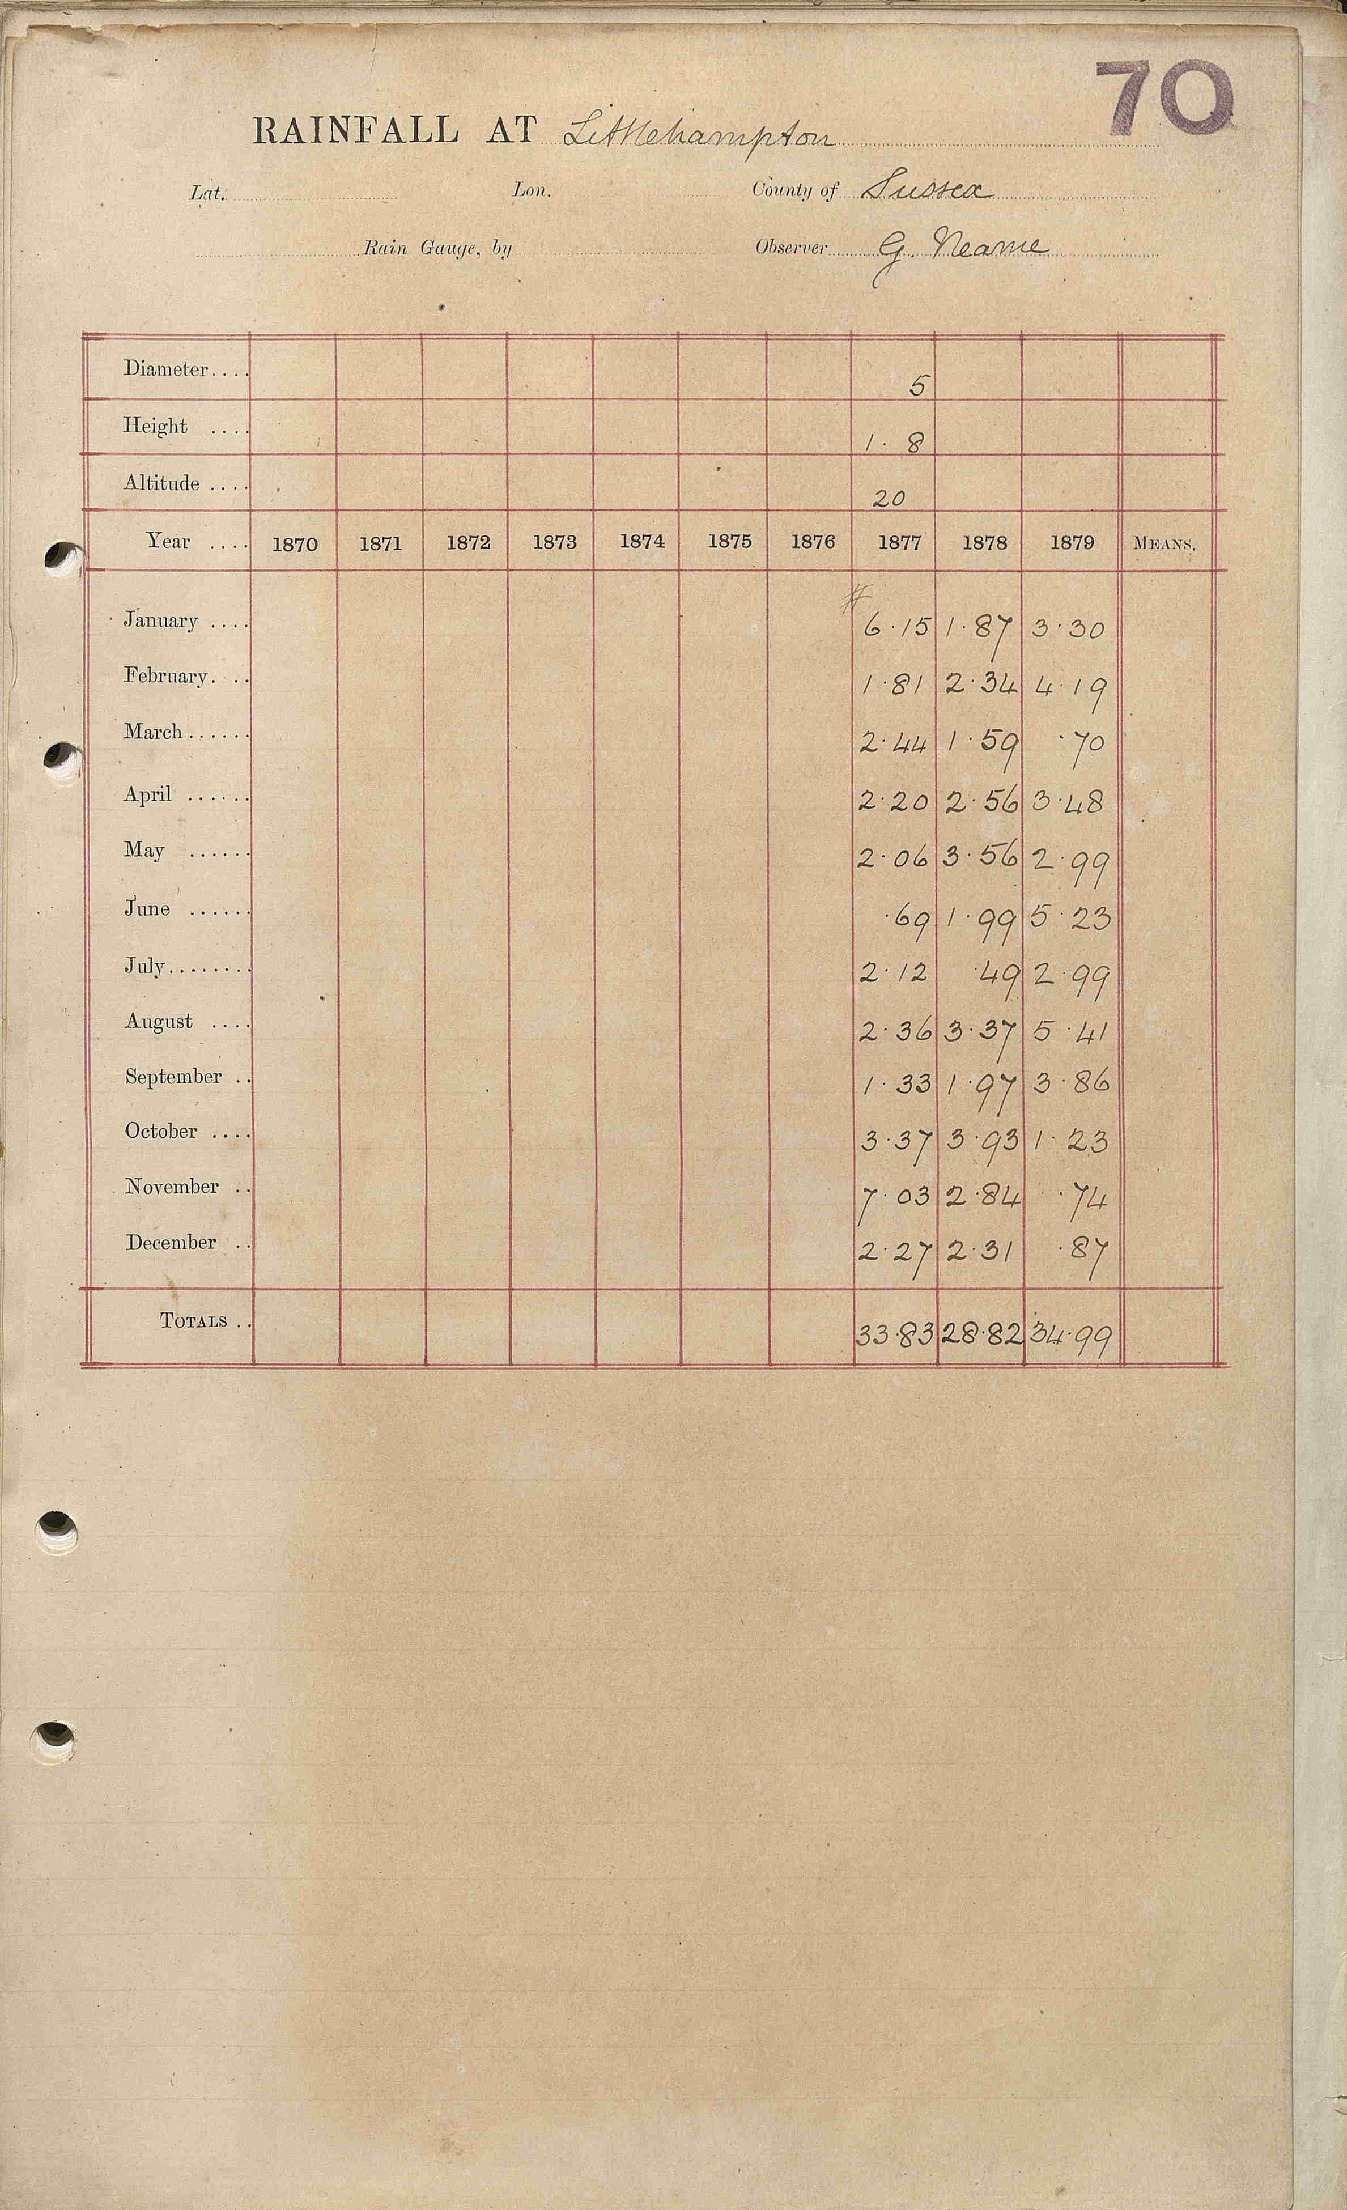 70
RAINFALL AT Littlehampton
Lat. Lon. County of Sussex
Rain Gauge, by Observer G. Neame
Diameter.... 5
Height .... 1 · 8
Altitude .... 20
Year .... 1870 1871 1872 1873 1874 1875 1876 1877 1878 1879 MEANS.
#
January .... 6·15 1·87 3·30
February. .. 1·81 2·34 4·19
March...... 2·44 1·59 ·70
April ...... 2·20 2·56 3·48
May ...... 2·06 3·56 2·99
June ...... ·69 1·99 5·23
July........ 2·12 ·49 2·99
August .... 2·36 3·37 5·41
September .. 1·33 1·97 3·86
October .... 3·37 3·93 1·23
November .. 7·03 2·84 ·74
December .. 2·27 2·31 ·87
TOTALS .. 33·83 28·82 34·99